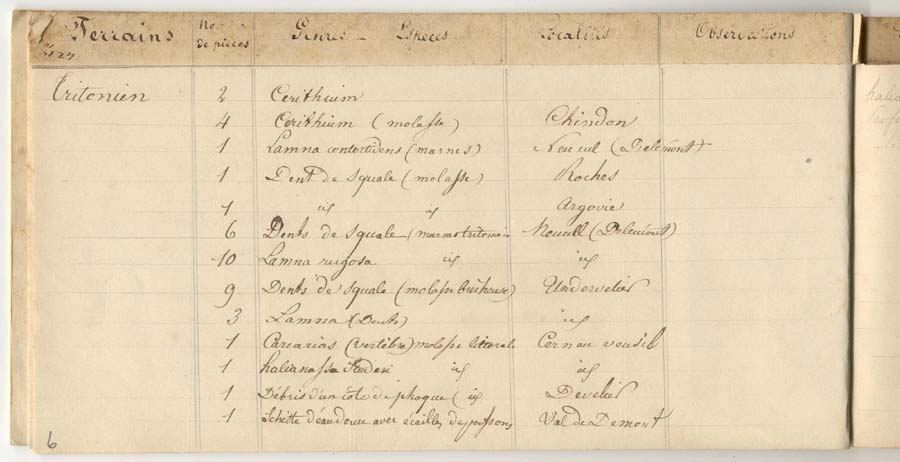 Terrains No. de pièces Genres - Espèces Localités Observations
Tritonien 2 Cerithium
4 Cerithium (molasse) Chindon
1 Lamna contortidens (marnes) Neucul (Delémont)
1 Dent de Squale (molasse) Roches
1 id id Argovie
6 Dents de Squale (marnes tritonie- Neucul (Delémont)
10 Lamna rugosa id id
9 Dents de Squale (molasse Undervelier
3 Lamna (Dents) id
1 Carcarias (vertèbre) molasse littoral
1 halianassa Studeri id id
1 Débris d'un côte de phoque (id Develier
1 Schiste d'eau douce avec écailles de poissons Val de
6